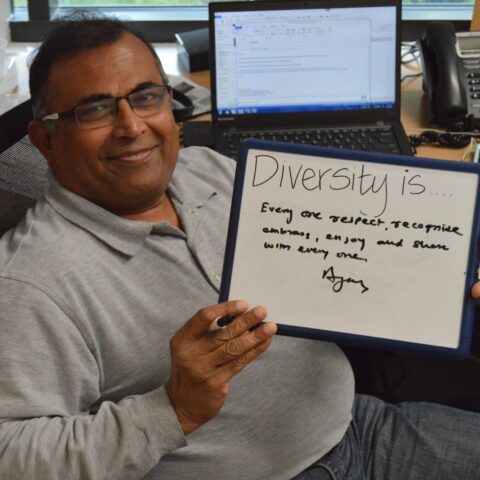 Diversity is....
Every one respect, recognize
embrass, enjoy and share
with every one.
Ajay